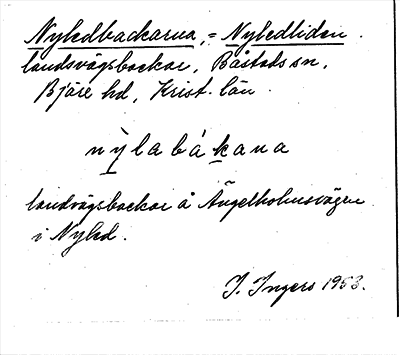 Nyledbackarna, = Nyledliden.
landsvägsbackar, Båstads sn,
Bjäre hd, Krist. län.
nỳlabákana
landsvägsbackar å Ängelholmsvägen
i Nyled.
I. Ingers 1953.